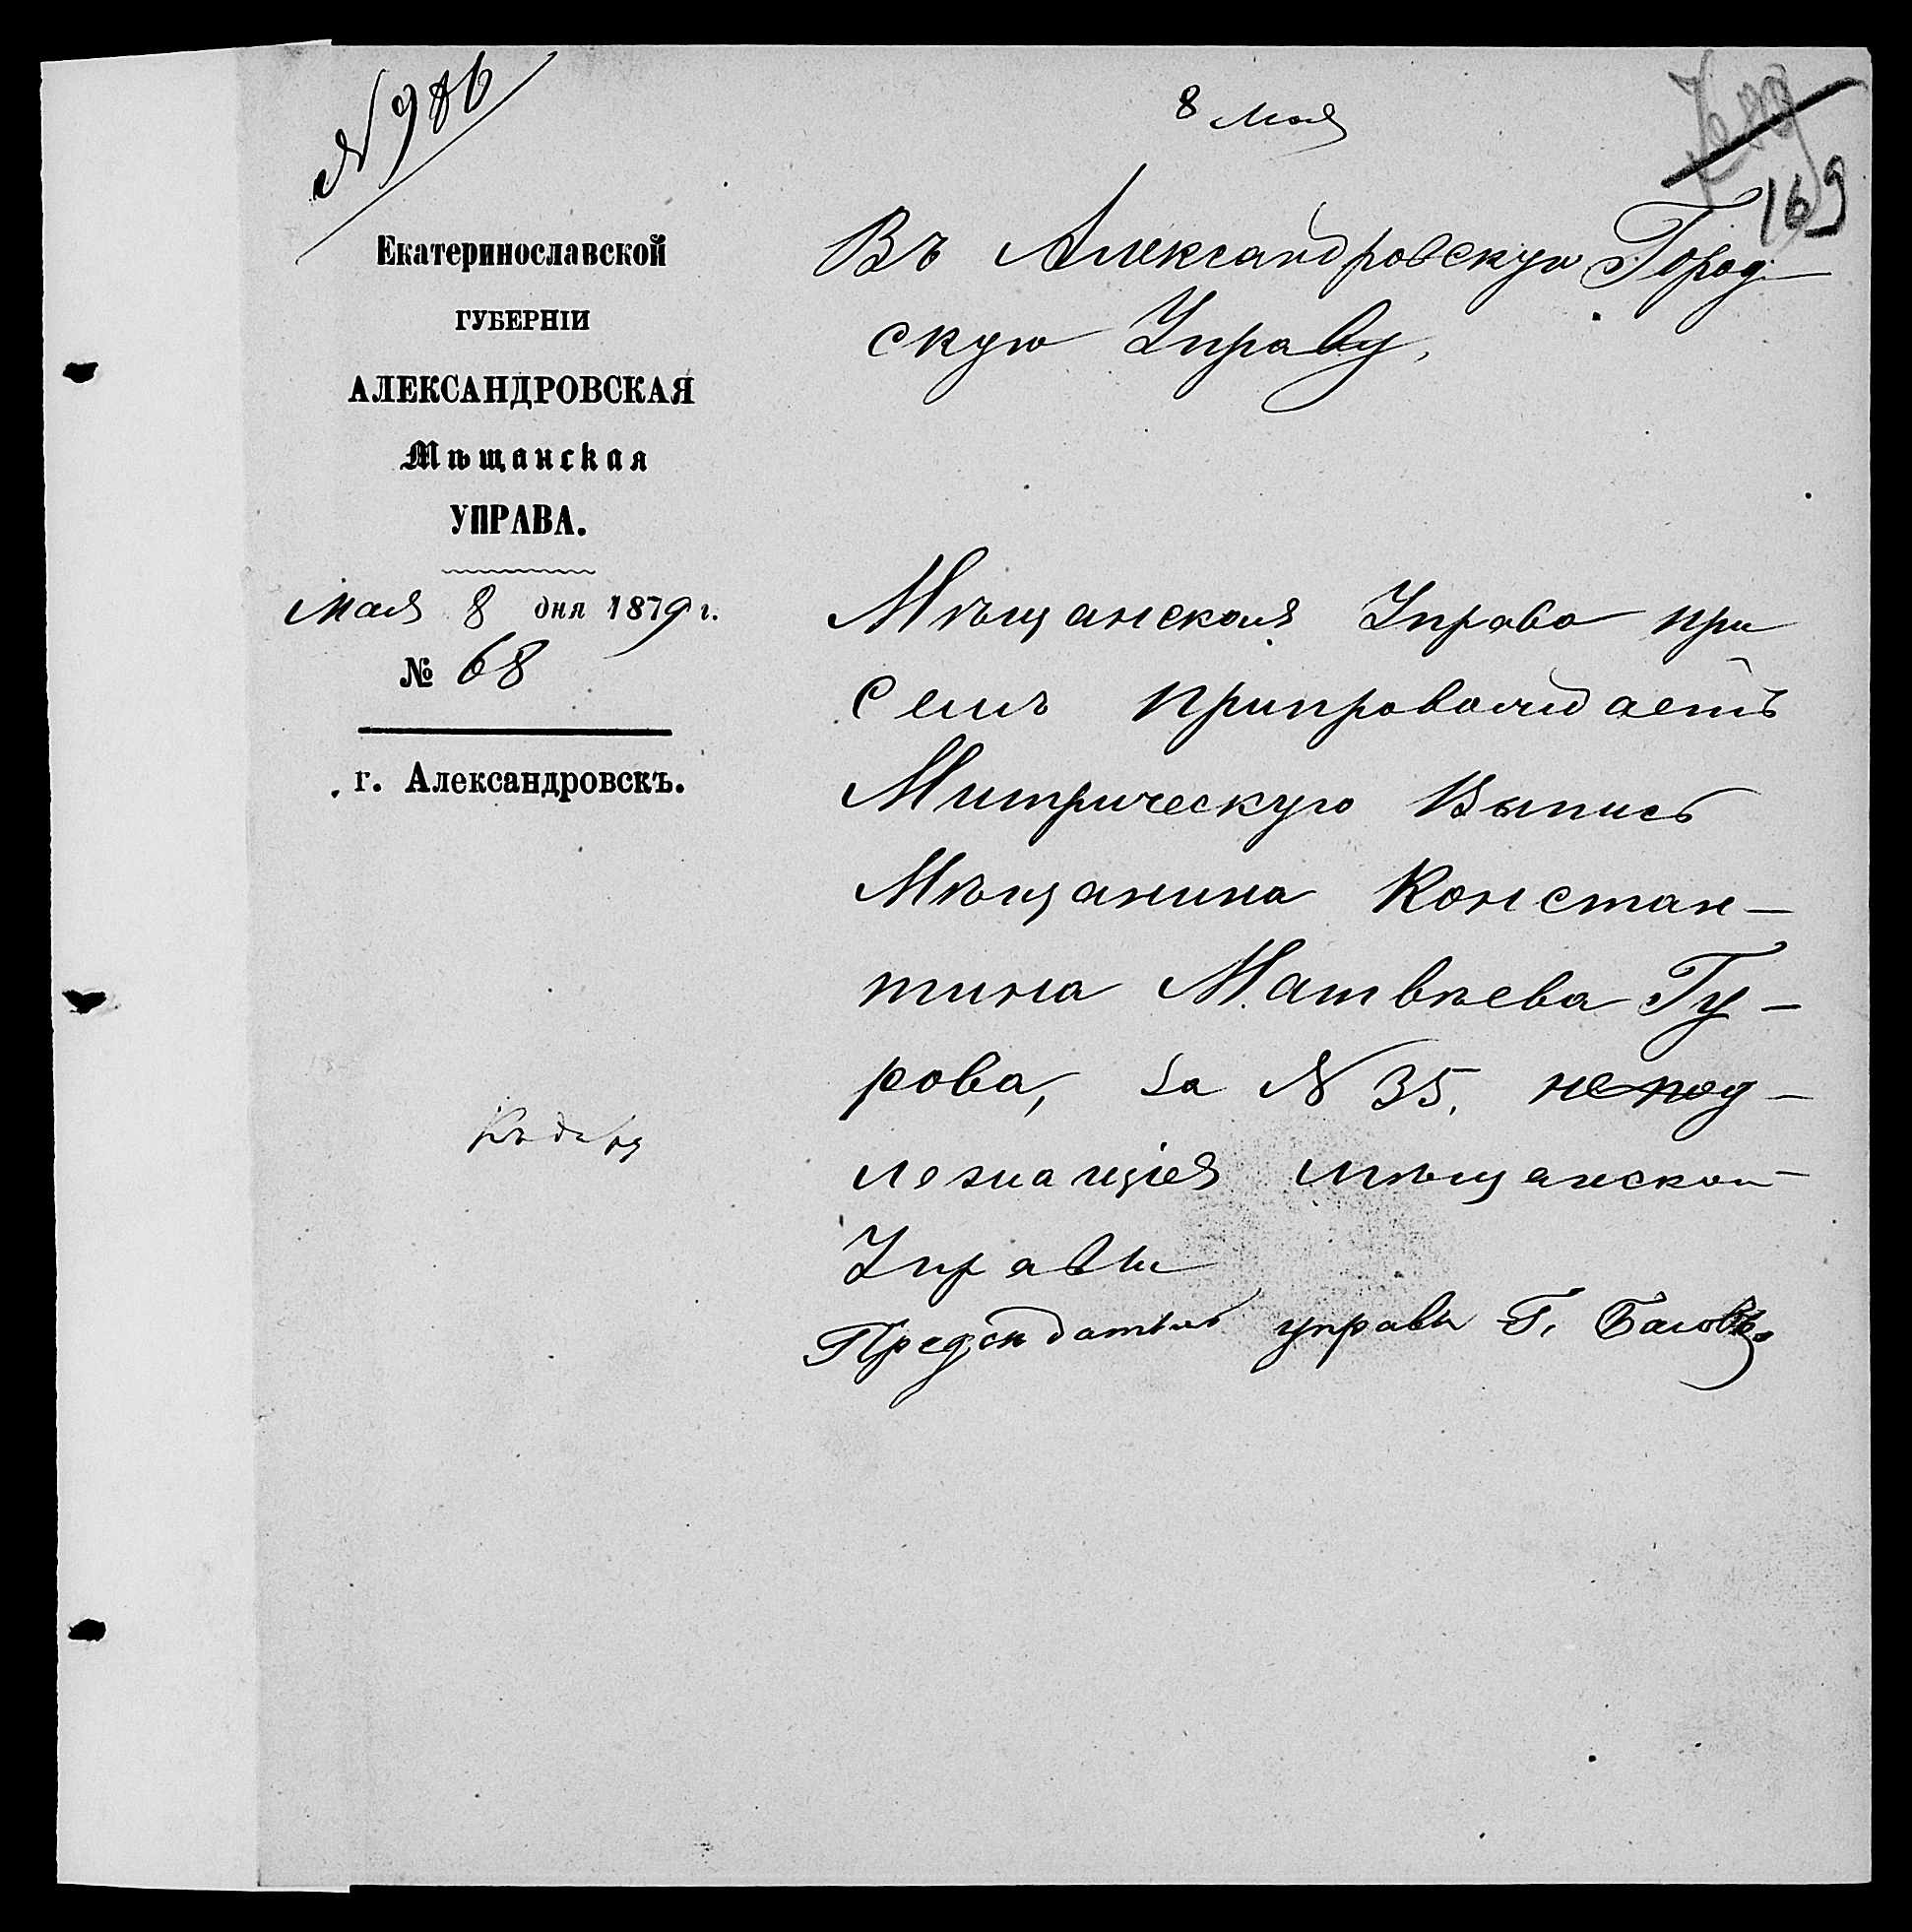 N 986
8 Мая
169
Екатеринославской
ГУБЕРНІИ
АЛЕКСАНДРОВСКАЯ
Мѣщанская
УПРАВА.
Мая 8 дня 1879 г.
№ 68
г. Александровскъ.
Въ Александровскую Город
скую Управу.
Мѣщанская Управа при
семъ припровождаетъ
Митрическую Выпись
Мѣщанина Констан-
тина Матвѣева Гу-
рова, за N 35, непод-
лежащія мѣщанской
Управы
Предсѣдатель управы Г.
Къ дѣлу